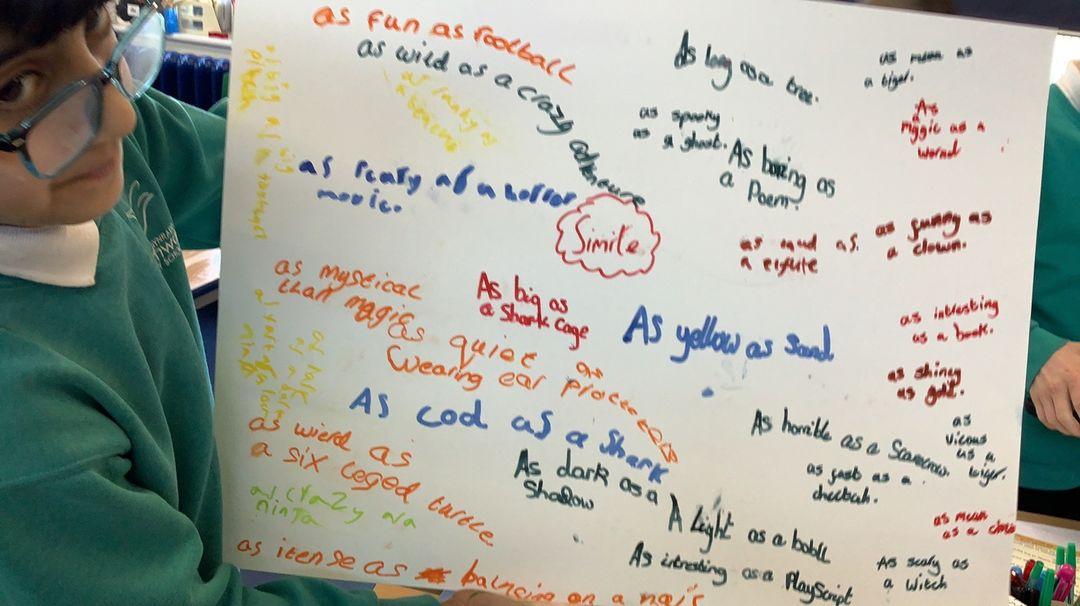 as fun as football
as wild as a crazy adtneure
As long as a tree.
as mean as
a tiger.
as spooky
as a ghost.
As
mggic as a
wornd
As boring as
a Poem.
as scary as a horror
movie.
Simile
as funny as
a clown.
as mad as.
a
as mystical
than magic
As big as
a Shark cage
As yellow as Sand
as intresting
as a book.
as quiet as
Wearing ear protecters
as shiney
as gold.
As cod as a Shark
As horrible as a Scarecrow.
as
vicous
as a
tiger.
as wierd as
a six leged turtle
As dark as a
Shadow
as fast as a
cheetah.
as crazy as a
ninja
A light as a babll
as mean
as a clow
as itense as balncing on a
As intresting as a PlayScript
As scary as
a witch